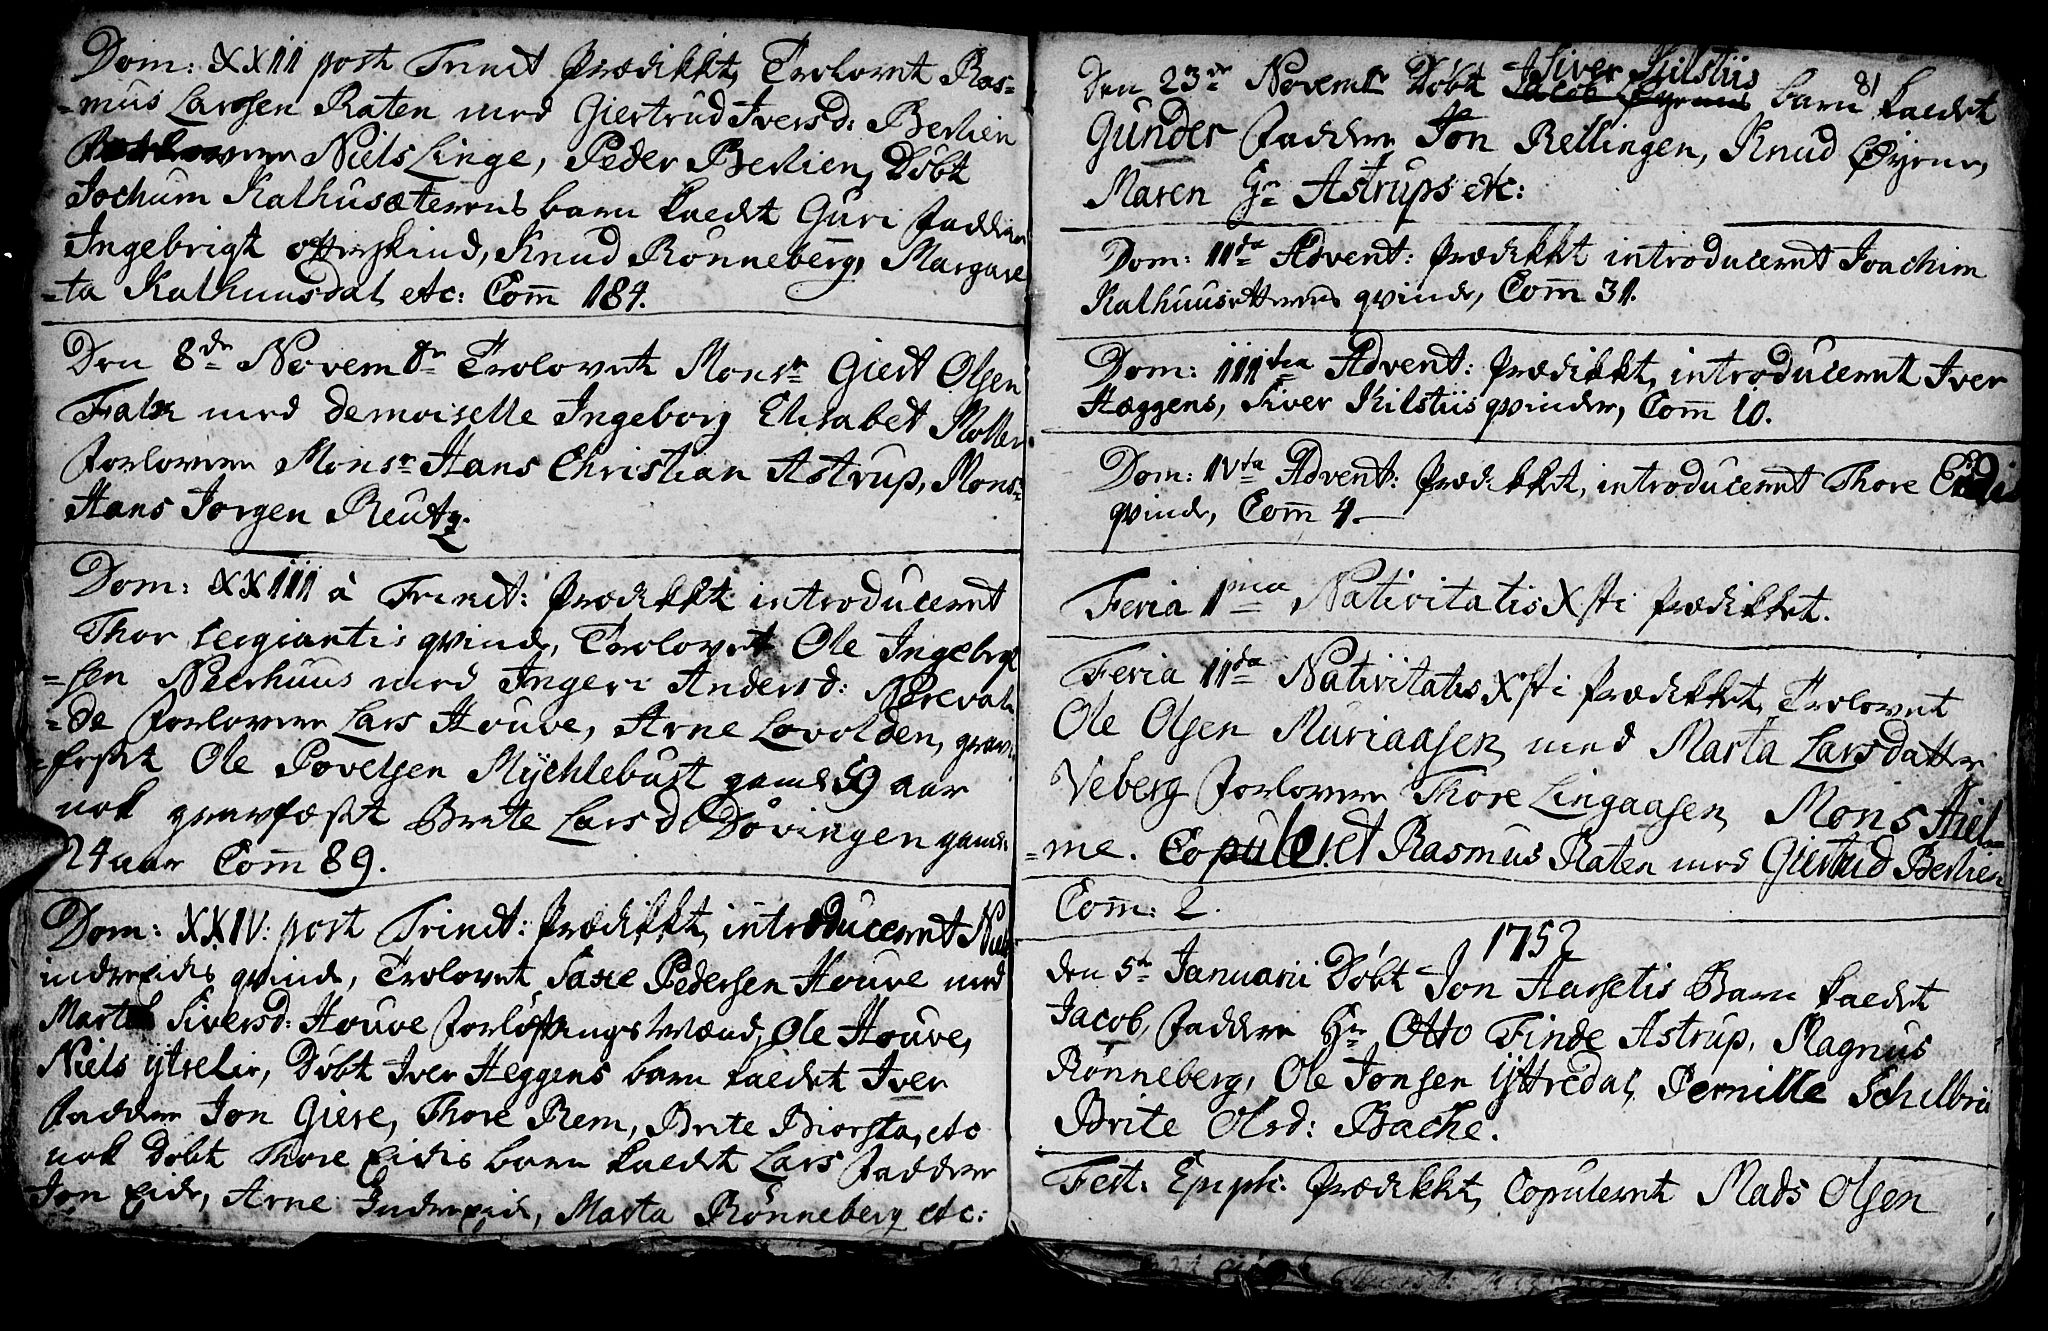 Dom: XXII post Trinit Prædikket, Trolovet Ras-
-mus Larssen Raten med Giertrud Iversd: Berlien
Forlovere Niels Linge, Peder Berlien, Døbt
Jochum Kalhusæterens barn kaldet Guri faddere
Ingebrigt offterskind, Knud Rønneberg, Margare
-ta Kalhuusdal etc: Com̄ 184.
Den 8de Novembr Trolovet Monsr Giert Olsen
Falx med demoiselle Ingeborg Elisabet Moller
forlovere Monsr Hans Christian Astrup, Monsr
Hans Jørgen Reutz.
Dom: XXIII à Trinit: Prædikket introduceret
Thor sergiantis qvinde, Trolovet Ole Ingebrigt
-sen Neerhuus med Ingeri Andersd: Nerevol
-de forlovere Lars Houve, Arne Lovolden, grav
-festet Ole Povelsen Mychlebust gaml 59 aar
nok gravfæst Brite Larsd Døvingen gaml
24 aar Com̄ 89.
Dom: XXIV: post Trinit: Prædikket, introduceret Niels
indreeidis qvinde, Trolovet Saxe Pedersen Houve med
Marta Siversd: Houve forløftningsmænd, Ole Houve,
Niels ytrelir, Døbt Iver Heggens barn kaldet Iver
faddere Jon Giere, Thore Rem, Brite Biorsta, etc
nok Døbt Thore Eidis barn kaldet Lars faddere
Jon Eide, Arne Indreeide, Marta Rønneberg etc:
81
Den 23de Novembr Døbt Siver Kilstiis barn kaldet
Gunder faddere Jon Rellingen, Knud Øyene,
Maren Hr Astrups etc:
Dom: IIda Advent: Prædikket introduceret Joachim
Kalhuusætterens qvinde, Com̄ 31.
Dom: IIItia Advent: Prædikket, introduceret Iver
Hæggens, Siver Kilstiis qvinder, Com̄ 10.
Dom: IVta Advent: Prædikket, introduceret Thore Eidis
qvinde, Com̄ 4.
Feria 1ma Nativitatis Xsti Prædikket.
Feria IIda Nativitatis Xsti Prædikket, Trolovet
Ole Olsen Muriaasen med Marta Larsdatter
Veberg forlovere Thore Lingaasen, Mons Hiel-
-me. Copuleret Rasmus Raten med Giertrud Berlien
Com̄: 2.
1752
den 5te Januarii Døbt Jon Harsetis Barn kaldet
Jacob, faddere Hr Otto Finde Astrup, Magnus
Rønneberg, Ole Jonsen Yttredal, Pernille Schelbrei
Brite Olsd: Bache.
Fest. Epiph: Prædikket, Copuleret Mads Olsen